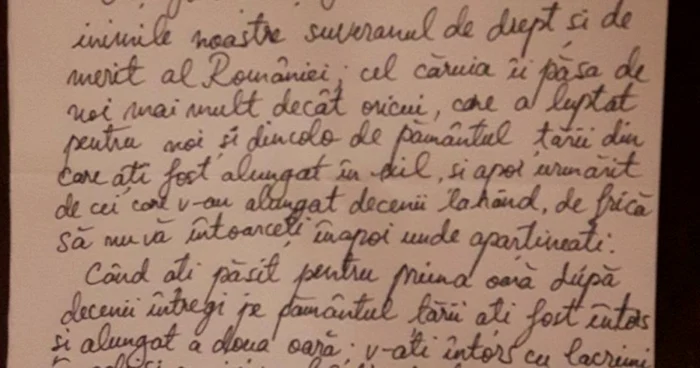 inimile noastre suveranul de drept și de
merit al României; cel căruia îi păsa de
noi mai mult decât oricui, care a luptat
pentru noi și dincolo de pământul țării din
care ați fost alungat în exil, și apoi urmărit
de cei care v-au alungat decenii la rând, de frică
să nu vă întoarceți înapoi unde aparțineați.
Când ați pășit pentru prima oară după
decenii întregi pe pământul țării ați fost întors
și alungat a doua oară; v-ați întors cu lacrimi